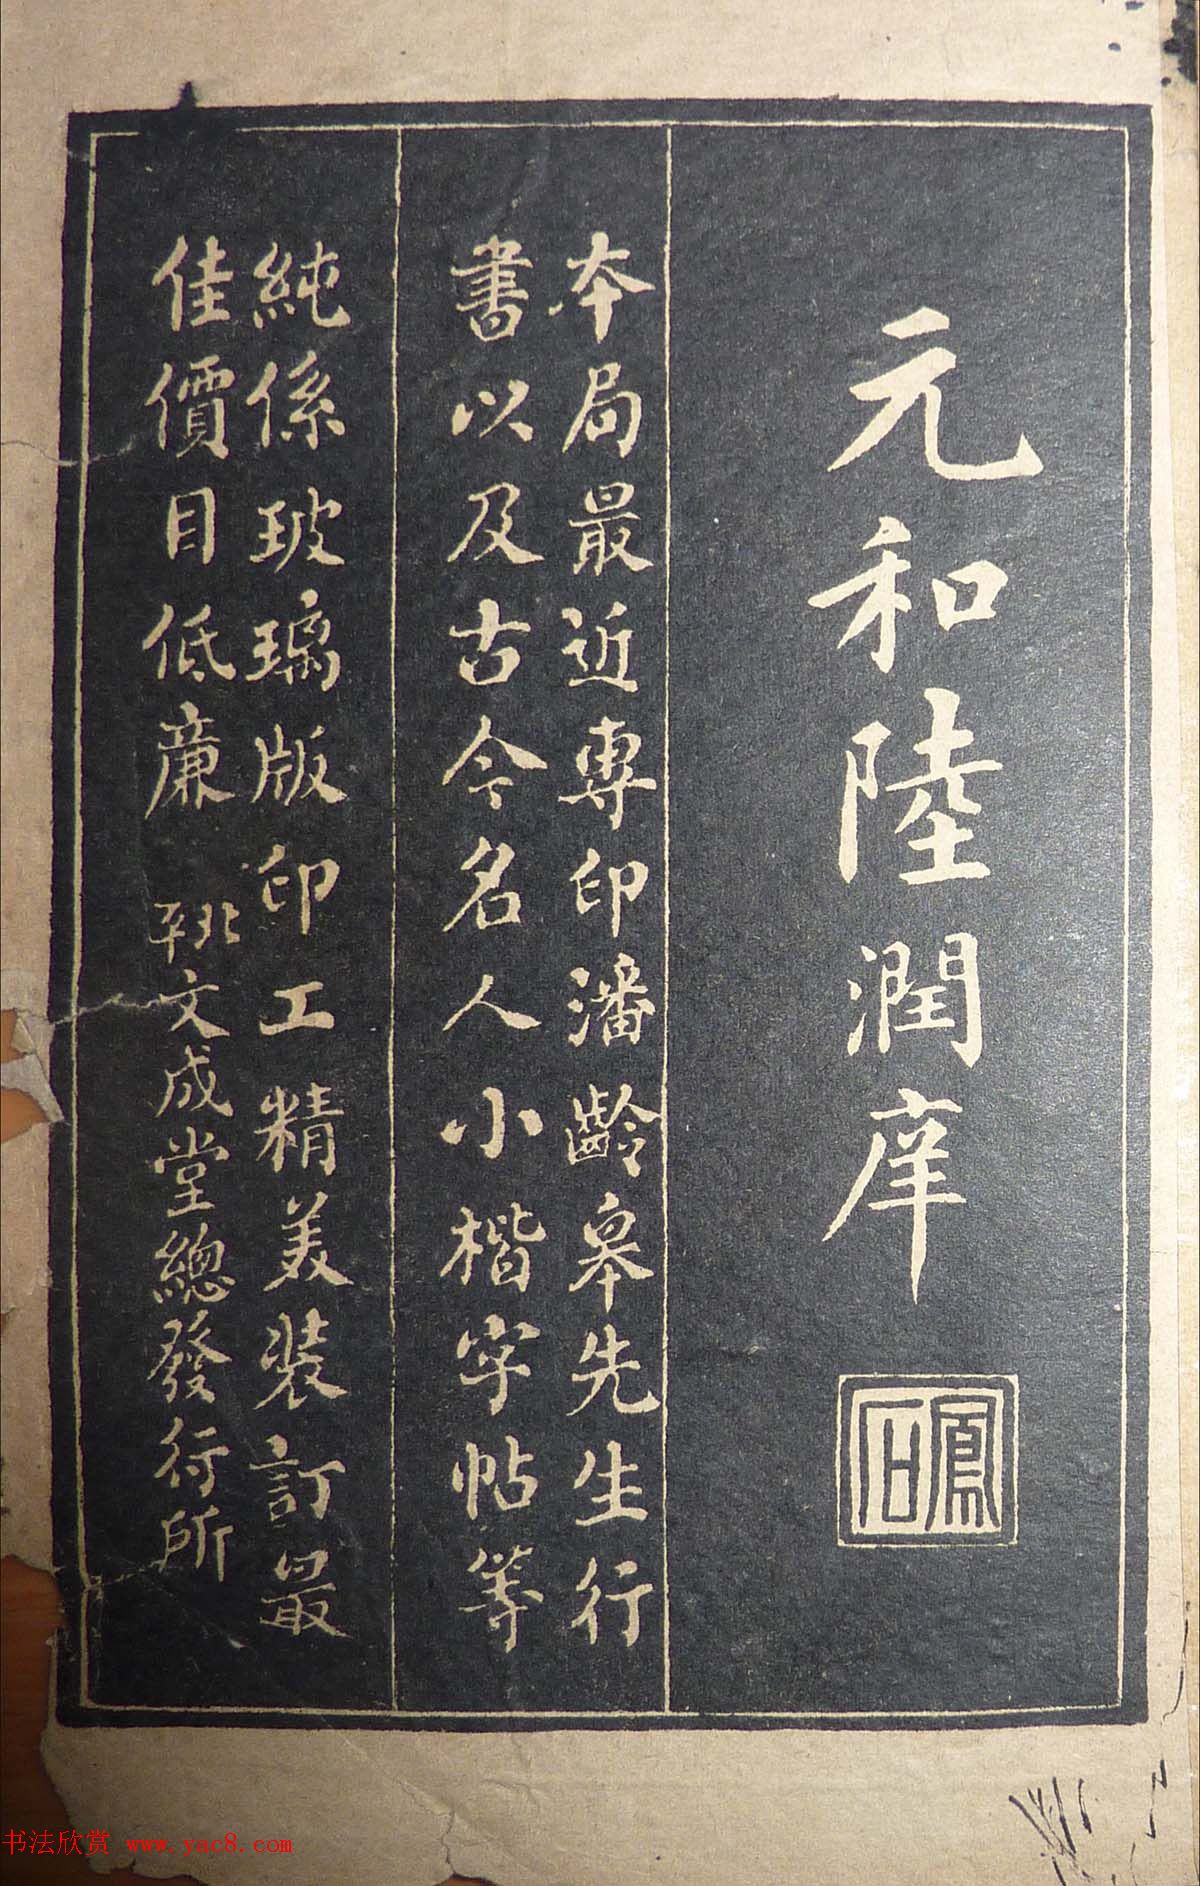 元和陸潤庠
鳳石
本局最近專印潘齡皋先生行
書以及古今名人小楷字帖等
純係玻璃版印工精美裝訂最
佳價目低廉 北平文成堂總發行所
书法欣赏 www.yac8.com